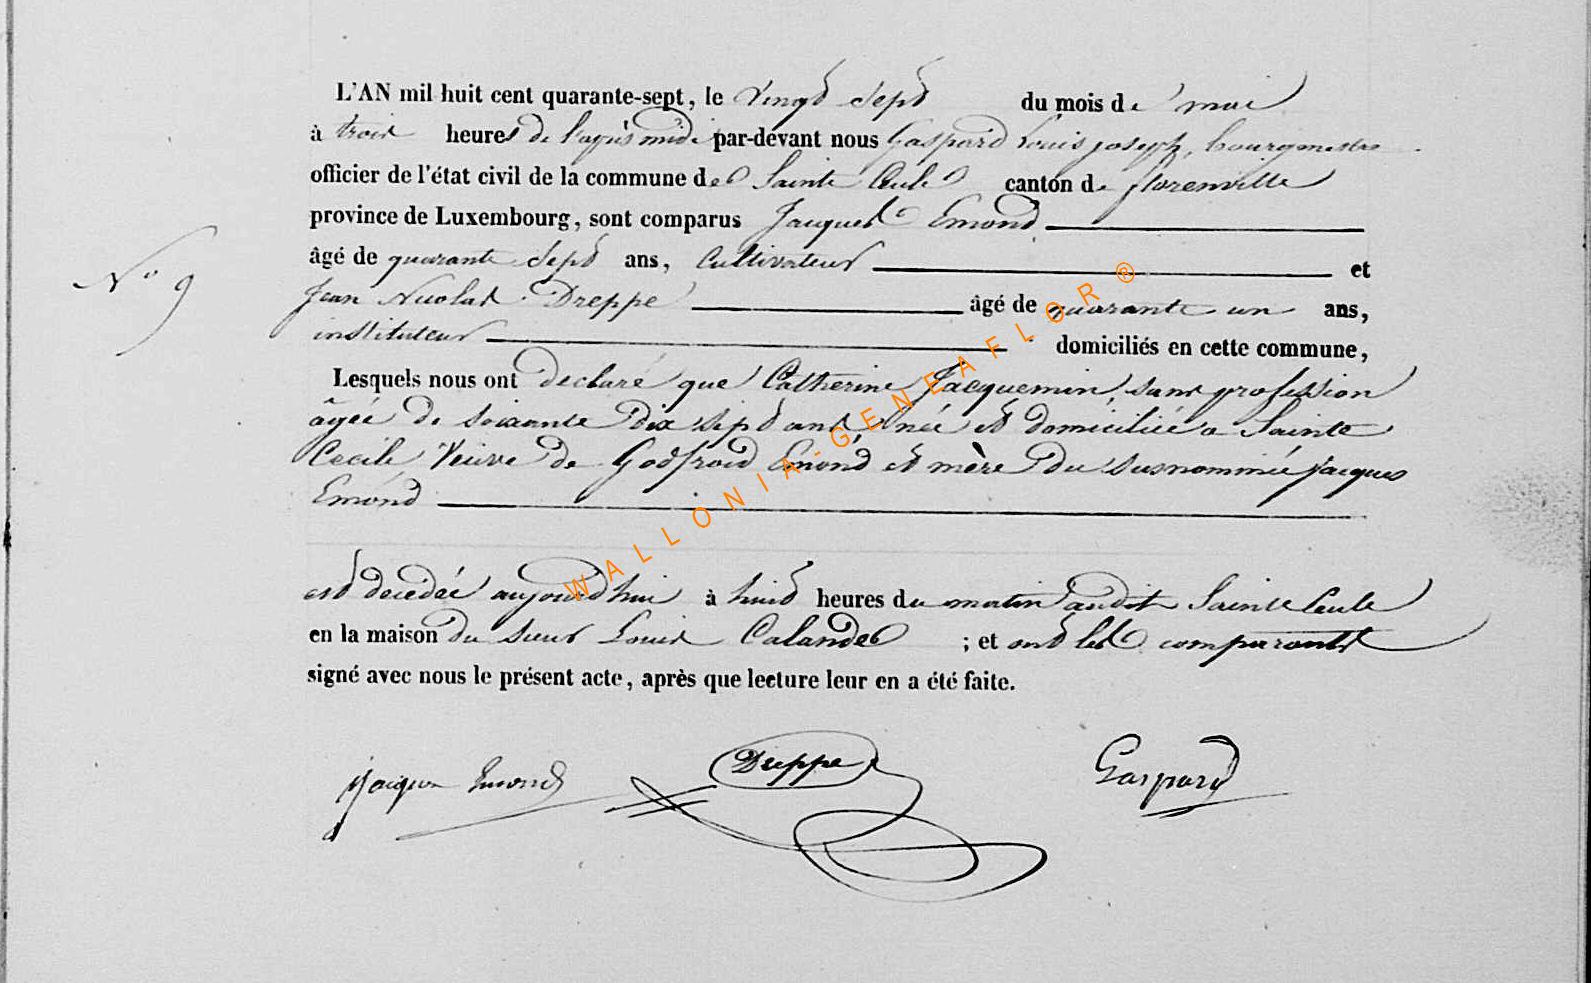 L'AN mil huit cent quarante-sept, le vingt sept du mois de mai
à trois heures de l'après midi par-devant nous Gaspard Louis joseph, bourgmestre
officier de l'état civil de la commune de Sainte Cecile canton de florenville
province de Luxembourg, sont comparus Jacques Emond
N° 9
âgé de quarante sept ans, Cultivateur et
Jean Nicolas Dreppe âgé de quarante un ans,
instituteur domiciliés en cette commune,
Lesquels nous ont declaré que Catherine Jacquemin, sans profession
âgée de soixante dix sept ans, née et domiciliée a Sainte
Cecile Veuve de Godfroid Emond et mère du susnommée jacques
Emond
est decedée aujourd'hui à huit heures du matin audit Sainte Cecile
en la maison du sieur Louis Calande ; et ont les comparants
signé avec nous le présent acte, après que lecture leur en a été faite.
jacques Emond Dreppe Gaspard
WALLONIA-GENEAFLOR®